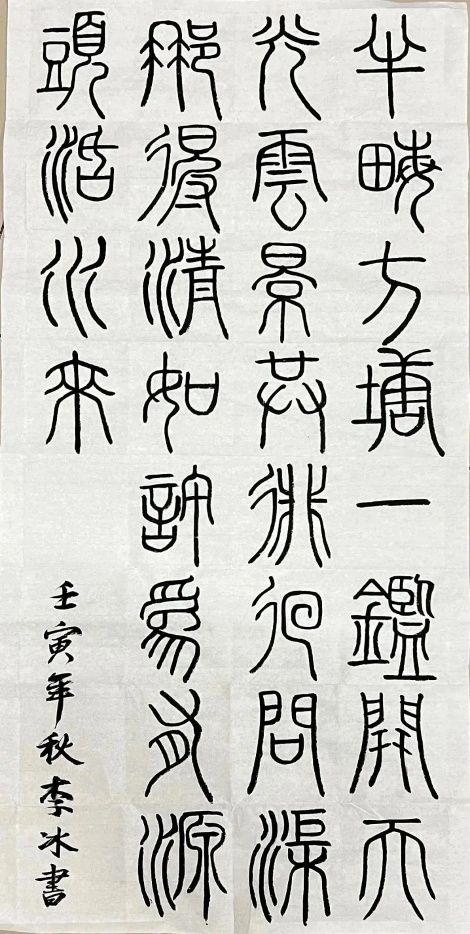 半畝方塘一鑑開天
光雲景共徘徊問渠
那得清如許為有源
頭活水來
壬寅年秋李冰書